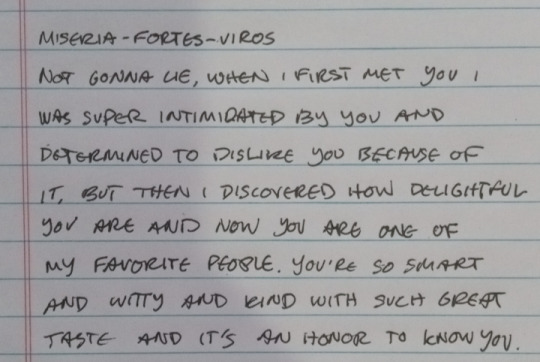 MISERIA-FORTES-VIROS
NOT GONNA LIE, WHEN I FIRST MET YOU I
WAS SUPER INTIMIDATED BY YOU AND
DETERMINED TO DISLIKE YOU BECAUSE OF
IT, BUT THEN I DISCOVERED HOW DELIGHTFUL
YOU ARE AND NOW YOU ARE ONE OF
MY FAVORITE PEOPLE. YOU'RE SO SMART
AND WITTY AND KIND WITH SUCH GREAT
TASTE AND IT'S AN HONOR TO KNOW YOU.